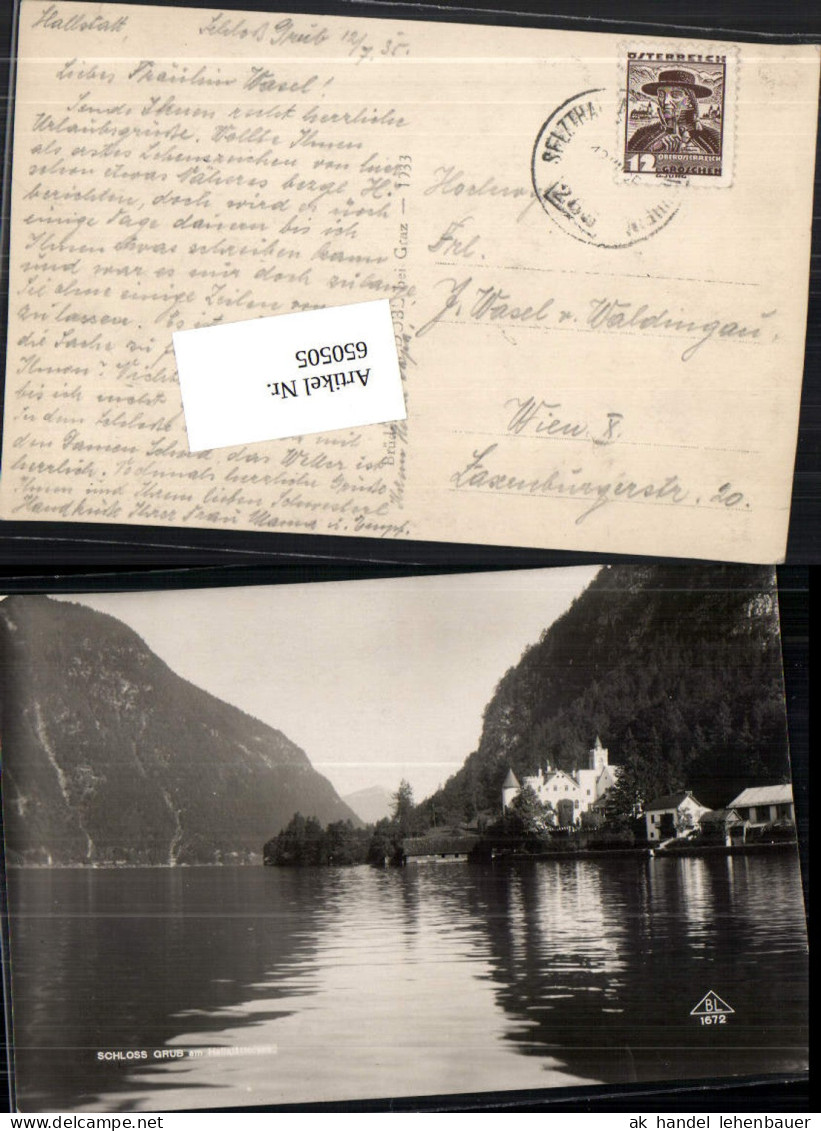 Hallstatt, Schloß Grub 12/7. 35.
Liebes Fräulein Wasel!
Sende Ihnen recht herrliche
Urlaubsgrüße. Wollte Ihnen
als erstes Lebenszeichen von hier
schon etwas Näheres
berichten, doch wird es noch
einige Tage dauern bis ich
Ihnen etwas schreiben kann
und war es mir doch zu lange
Sie ohne einige Zeilen von
zu lassen. Es ist
die Sache zu
Ihnen? Nicht
bis ich nicht
In dem Schloße mit
den Damen das Wetter ist
herrlich. Nochmals herrliche Grüße
Ihnen und Ihrem lieben Schwesterl
Handküße Ihrer Frau Mama u. Empf.
bei Graz — 1933
Artikel Nr.
650505
ÖSTERREICH
12
OBERÖSTERREICH
GROSCHEN
SELZTHAL
Hochwg.
Frl.
J. Wasel v. Waldingau,
Wien X.
Laxenburgerstr. 20.
SCHLOSS GRUB am Hallstättersee
BL
1672
ak handel lehenbauer